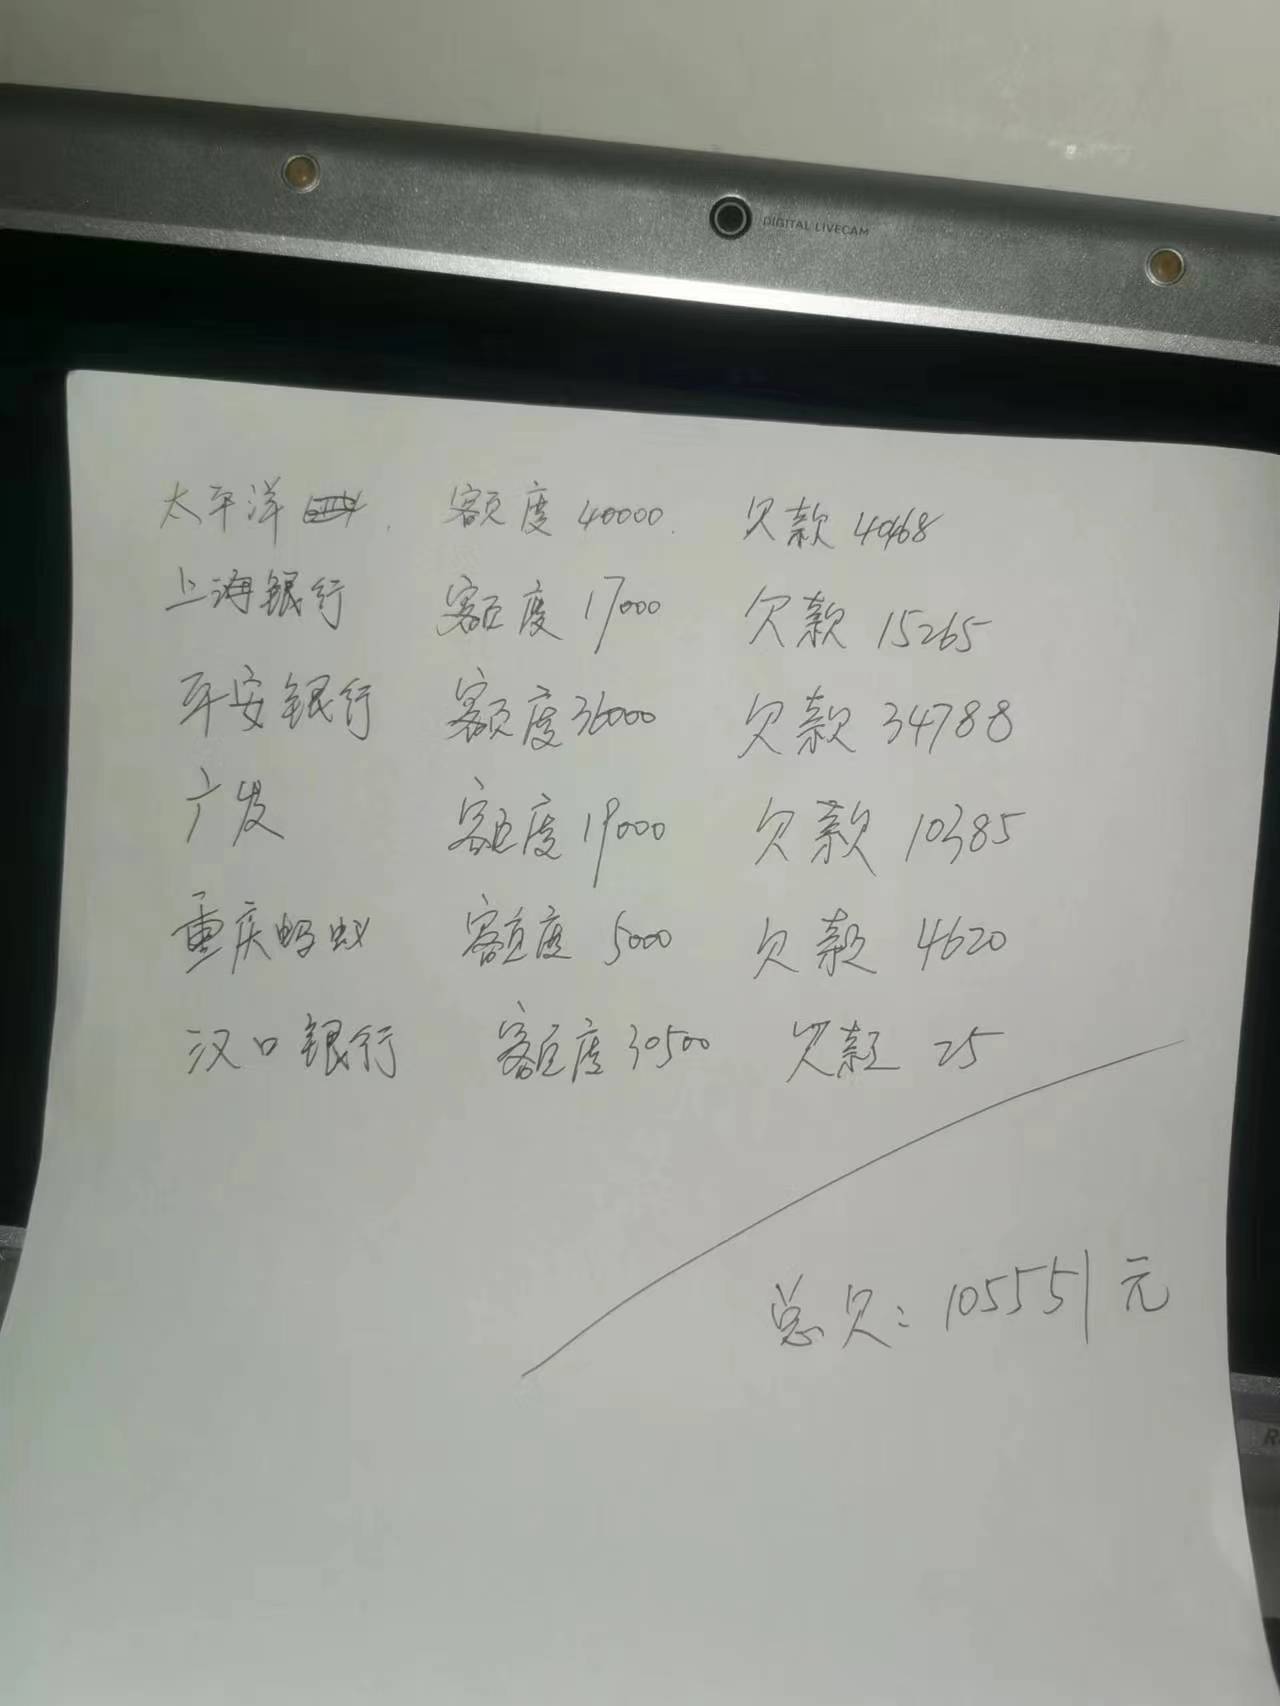 DIGITAL LIVECAM
太平洋 额度 40000 欠款 40468
上海银行 额度 17000 欠款 15265
平安银行 额度 36000 欠款 34788
广发 额度 19000 欠款 10385
重庆蚂蚁 额度 5000 欠款 4620
汉口银行 额度 30500 欠款 25
总欠：105551元